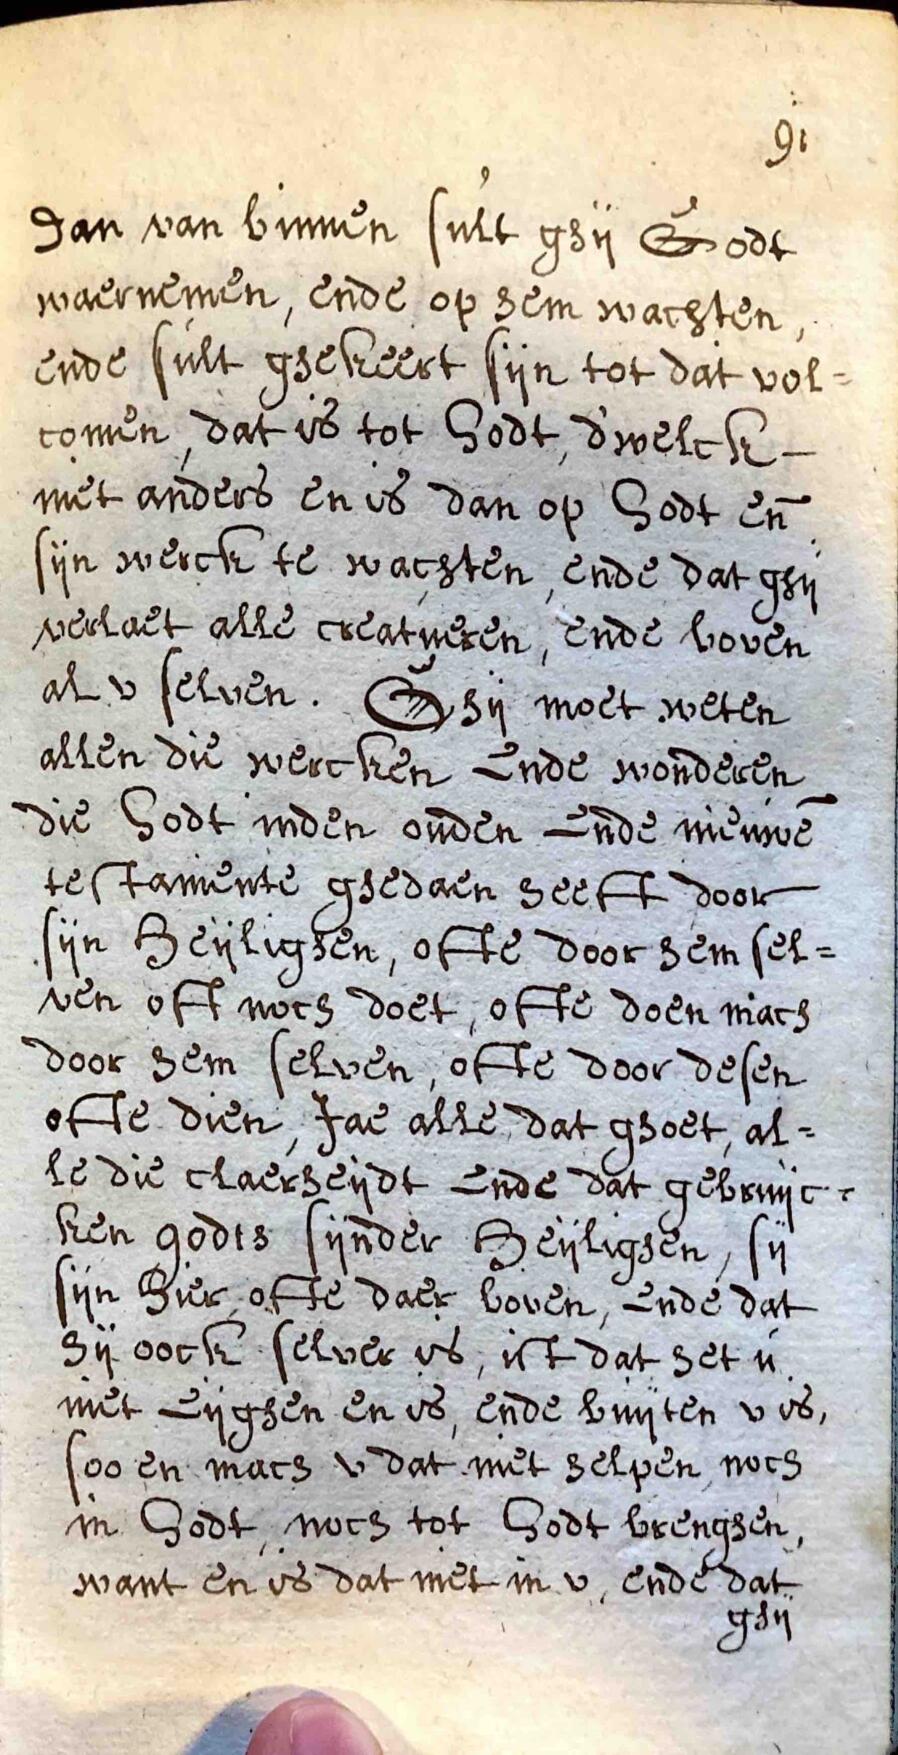 91
dan van binnen sult ghij Godt
waernemen, ende op hem wachten,
ende sult ghekeert sijn tot dat vol=
comen, dat is tot Godt, d'welck
niet anders en is dan op Godt eñ
sijn werck te wachten, ende dat ghij
verlaet alle creatueren, ende boven
al v selven. Ghij moet weten
allen die wercken Ende wonderen
die Godt inden ouden Ende nieuwē
testamente ghedaen heeft door
sijn Heijlighen, ofte door hem sel=
ven oft noch doet, ofte doen mach
door hem selven, ofte door desen
ofte dien, Jae alle dat ghoet, al=
le die claerheijdt Ende dat gebruijc=
ken godts sijnder Heijlighen, sij
sijn hier ofte daer boven, Ende dat
hij oock selver is, ist dat het u
niet Eijghen en is, ende buijten v is,
soo en mach v dat niet helpen, noch
in Godt, noch tot Godt brenghen,
want en is dat niet in v, ende dat
ghij